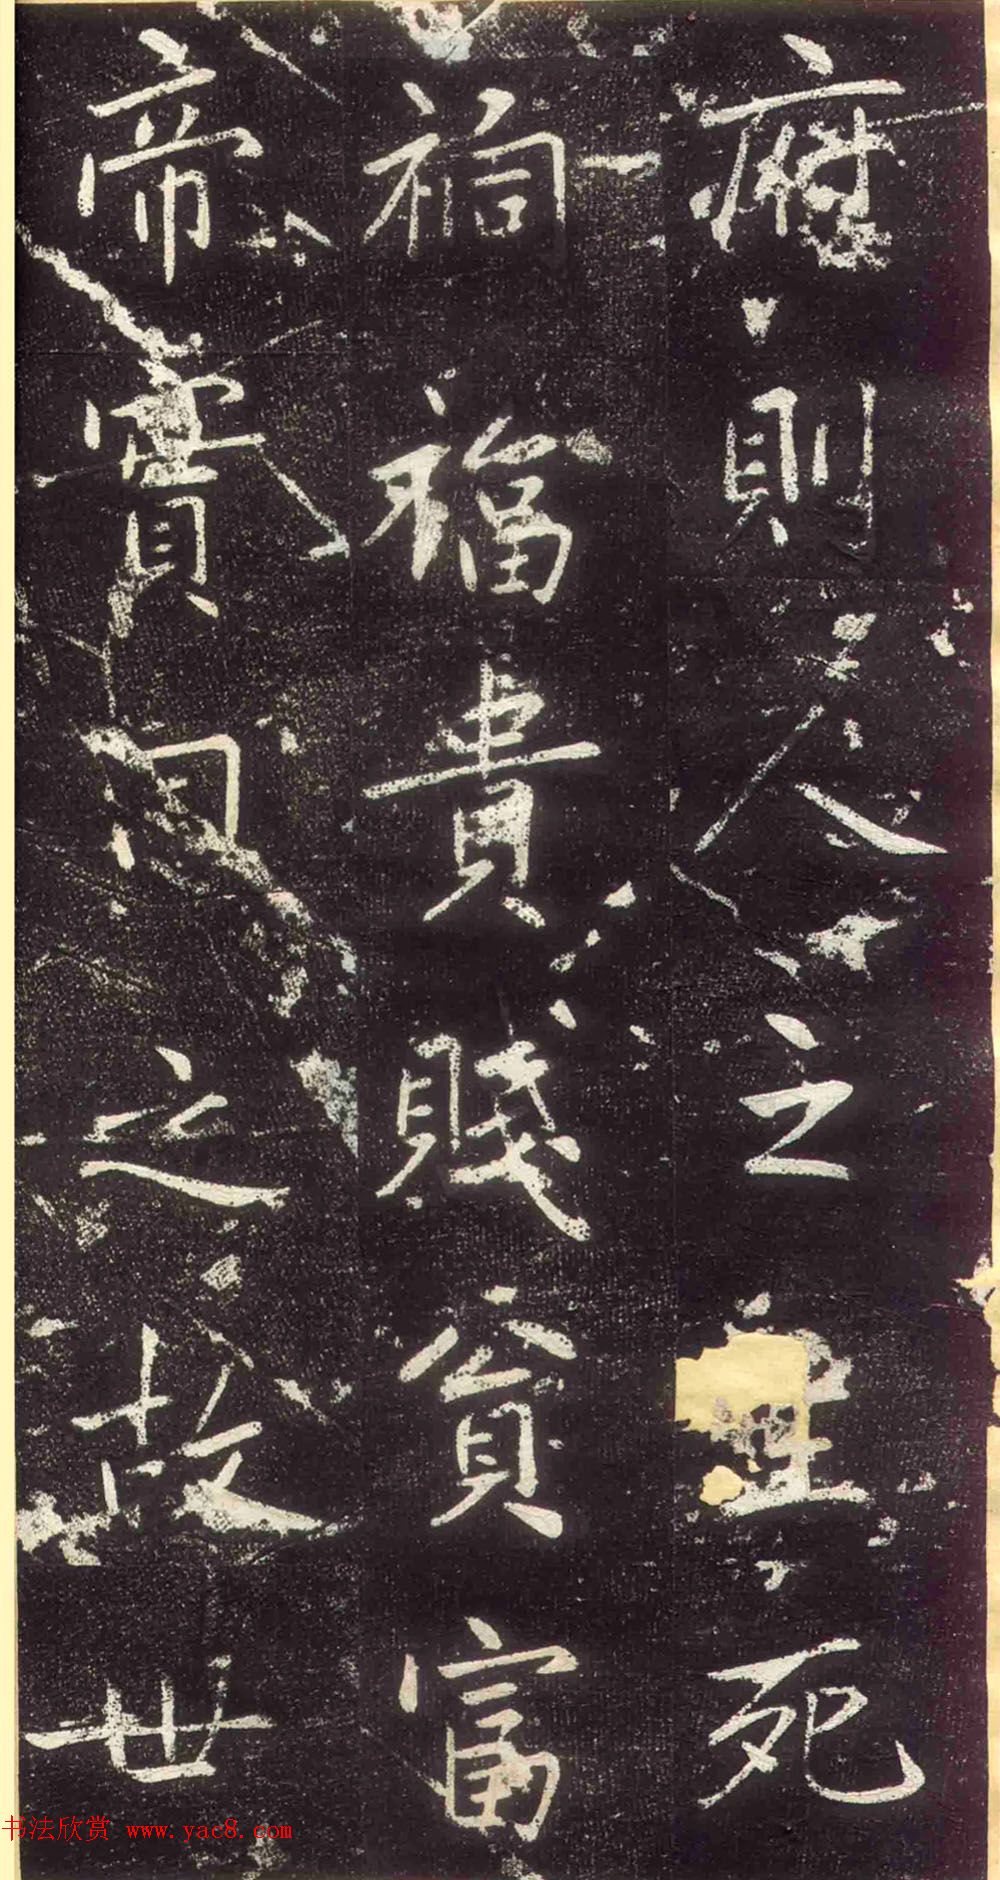 則人之生死
禍福貴賤貧富
帝實司之故世
书法欣赏 www.yac8.com